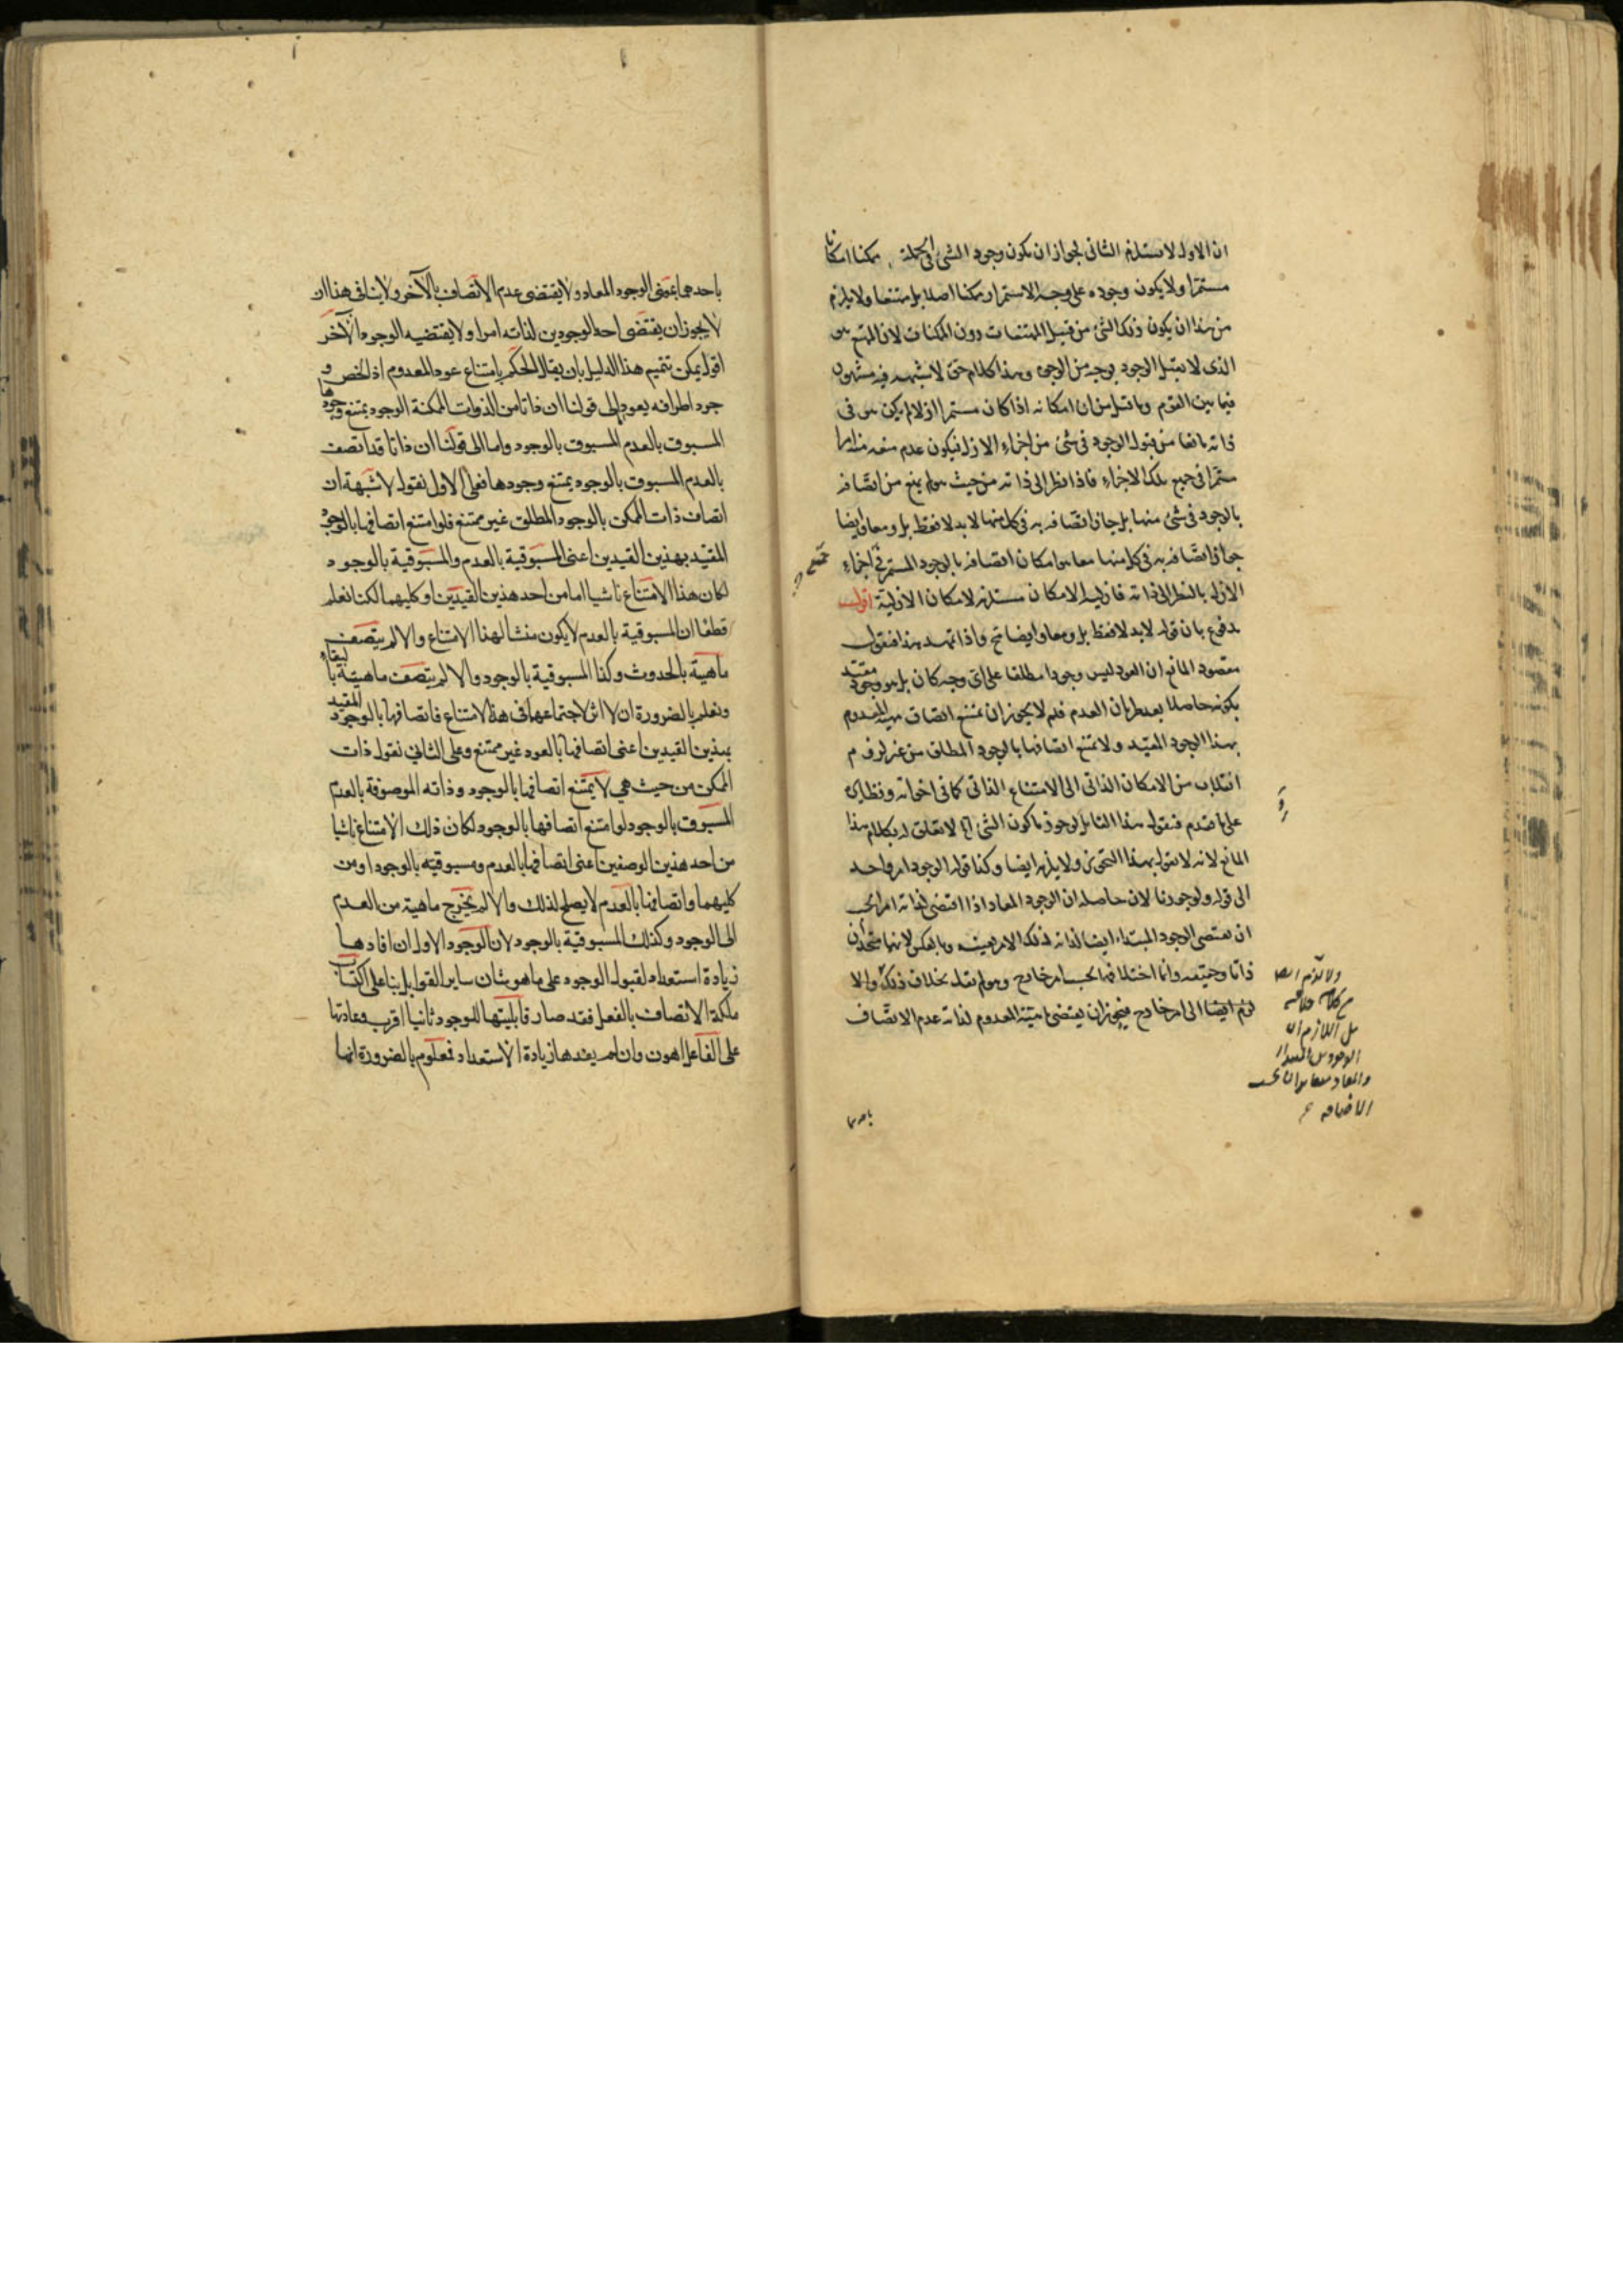 ان الاول لا يستلزم الثانى لجواز ان يكون وجود الشئ فى الجملة ممكنا امكانا
مستمرا ولا يكون وجوده على وجه الاستمرار ممكنا اصلا بل ممتنعا ولا يلزم
من هذا ان يكون ذلك الشئ من قبيل الممتنعات دون الممكنات لان الممتنع هو
الذى لا يقبل الوجود بوجه من الوجوه وهذا كلام حق لا شبهة فيه مشهور
فيما بين القوم وما قيل من ان امكانه اذا كان مستمرا ازلا لم يكن هو فى
ذاته مانعا من قبول الوجود فى شئ من اجزاء الازل فيكون عدم منعه منه امرا
مستمرا فى جميع تلك الاجزاء فاذا نظر الى ذاته من حيث هو لم يمنع من اتصافه
بالوجود فى شئ منها بل جاز اتصافه به فى كل منها لا بدلا فقط بل ومعا ايضا
جواز اتصافه به فى كل منها معا هو امكان اتصافه بالوجود المستمر فى اجزاء
الازل بالنظر الى ذاته فازلية الامكان مستلزمة لامكان الازلية اقول
مدفوع بان قوله لا بدلا فقط بل ومعا ايضا مم واذا تمهد هذا فنقول
مقصود المانع ان العود ليس وجودا مطلقا على اى وجه كان بل هو وجود مقيد
بكونه حاصلا بعد طريان العدم فلم لا يجوز ان يمتنع اتصاف مهية المعدوم
بهذا الوجود المقيد ولا يمتنع اتصافها بالوجود المطلق من غير لزوم
انقلاب من الامكان الذاتى الى الامتناع الذاتى كما فى اخواته ونظايره
على ما تقدم فنقول هذا القايل لو جوزنا كون الشئ الخ لا تعلق له بكلام هذا
المانع لانه لا يقول بهذا التجويز ولا يلزمه ايضا وكذا قوله الوجود امر واحد
الى قوله ولو جوزنا لان حاصله ان الوجود المعاد اذا اقتضى لذاته امرا يجب
ان يقتضى الوجود المبتداء ايضا لذاته لذلك الامر بعينه وبالعكس لانهما متحدان
ذاتا وحقيقة وانما اختلافهما بحسب امر خارج وهو لم يقل بخلاف ذلك ولا
لزم ايضا الى امر خارج فيجوز ان يقتضى مهية المعدوم لذاته عدم الاتصاف
ولا يلزم ايضا
من كلامه خلافه
بل اللازم ان
الوجودين المبتداء
والمعاد متغايران بحسب
الاضافة
باحدهما
باحدهما يعنى الوجود المعاد ولا يقتضى عدم الاتصاف بالآخر ولا ينافى هذا ان
لا يجوز ان يقتضى احد الوجودين لذاته امرا ولا يقتضيه الوجود الآخر
اقول يمكن تتميم هذا الدليل بان يقال الحكم بامتناع عود المعدوم اذا لخص و
جود اطرافه يعود الى قولنا ان ذاتا من الذوات الممكنة الوجود يمتنع وجودها
المسبوق بالعدم المسبوق بالوجود واما الى قولنا ان ذاتا قد اتصف
بالعدم المسبوق بالوجود يمتنع وجودها فعلى الاول نقول لا شبهة ان
اتصاف ذات الممكن بالوجود المطلق غير ممتنع فلو امتنع اتصافها بالوجود
المقيد بهذين القيدين اعنى المسبوقية بالعدم والمسبوقية بالوجود
لكان هذا الامتناع ناشيا اما من احد هذين القيدين او كليهما لكنا نعلم
قطعا ان المسبوقية بالعدم لا يكون منشأ لهذا الامتناع والا لم يتصف
ماهية بالحدوث وكذا المسبوقية بالوجود والا لم يتصف ماهية بالبقاء
ونعلم بالضرورة ان لا اثر لاجتماعهما فى هذا الامتناع فاتصافها بالوجود المقيد
بهذين القيدين اعنى اتصافها بالعود غير ممتنع وعلى الثانى نقول ذات
الممكن من حيث هى لا يمتنع اتصافها بالوجود وذاته الموصوفة بالعدم
المسبوق بالوجود لو امتنع اتصافها بالوجود لكان ذلك الامتناع ناشيا
من احد هذين الوصفين اعنى اتصافها بالعدم ومسبوقيته بالوجود او من
كليهما واتصافها بالعدم لا يصلح لذلك والا لم يخرج ماهية من العدم
الى الوجود وكذلك المسبوقية بالوجود لان الوجود الاول ان افادها
زيادة استعداد لقبول الوجود على ما هو شان ساير القوابل بناء على اكتساب
ملكة الاتصاف بالفعل فقد صار قابليتها للوجود ثانيا اقرب وعادتها
على الفاعل اهون وان لم يفدها زيادة الاستعداد فمعلوم بالضرورة انها